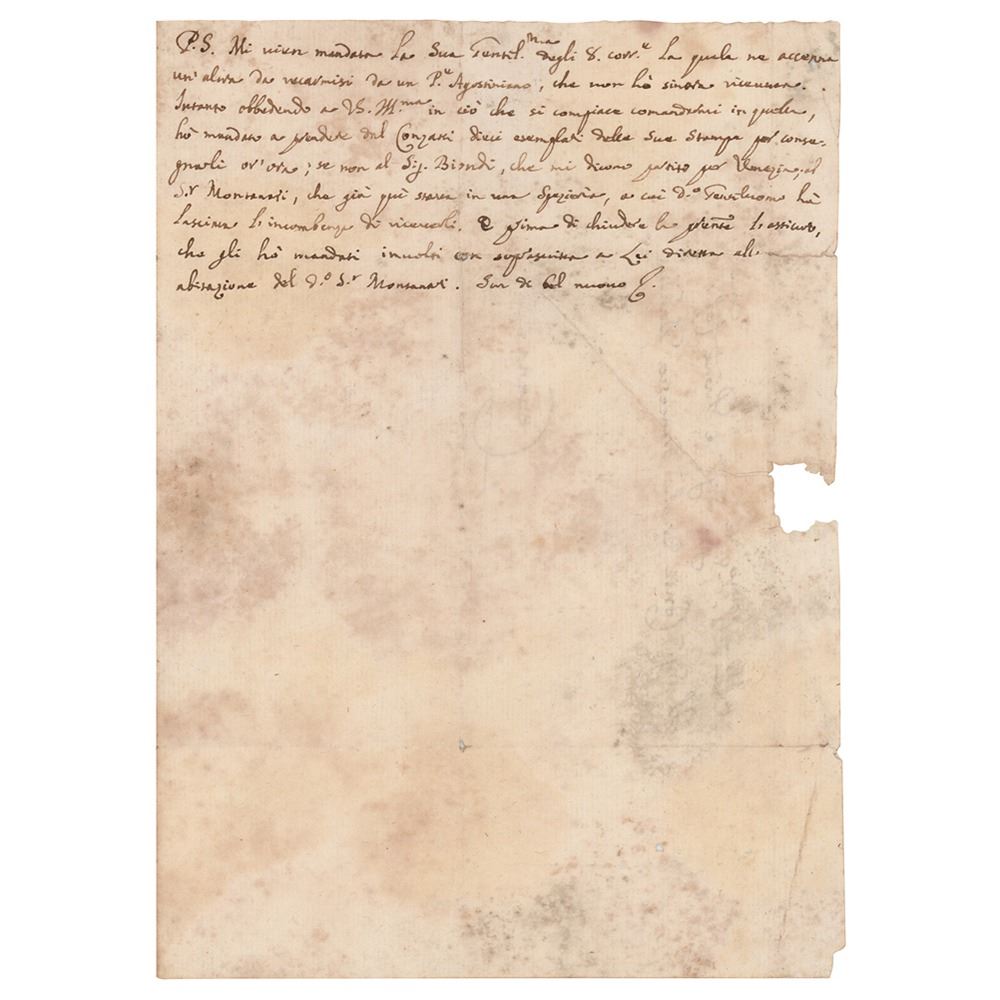 P.S. Mi vien mandata la Sua Gentil.ma degli 8. corr.e la quale ne accenna
un'altra da recarmisi da un P.e Agostiniano, che non hò sinora ricevuta.
Intanto obbedendo a VS. Ill.ma in ciò che si compiace comandarmi in quella,
hò mandato a prendere dal Conzatti dieci esemplari delle Sue stampe per conse-
gnarli or'ora; se non al Sig. Biondi, che mi dicono partito per Venezia, al
S.r Montanari, che già può stare in una Spezieria, a cui d.o Gentiluomo hà
lasciata l'incombenza di riceverli. E prima di chiudere la presente l'assicuro,
che gli hò mandati involti con soprascritta a Lei diretta all'
abitazione del d.o S.r Montanari. Son di bel nuovo